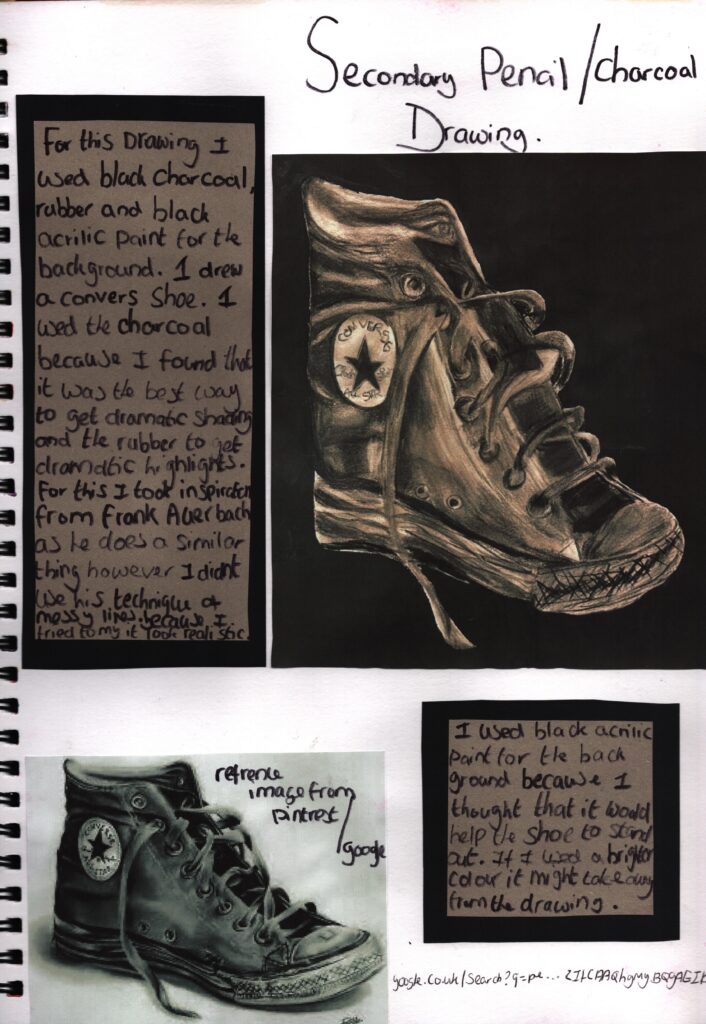 Secondary Pencil/charcoal
Drawing.
For this Drawing I
used black charcoal,
rubber and black
acrilic paint for the
background. I drew
a convers shoe. I
used the charcoal
because I found that
it was the best way
to get dramatic shading
and the rubber to get
dramatic highlights.
For this I took inspiration
from Frank Auerbach
as he does a similar
thing however I didnt
use his technique of
messy lines. because I
tried to my it look realistic.
CONVERSE
ALL STAR
refrence
image from
pintrest/
google
CONVERSE
ALL STAR
I used black acrilic
paint for the back
ground because I
thought that it would
help the shoe to stand
out. If I used a brighter
colour it might take away
from the drawing.
google.co.uk/search?q=pe...